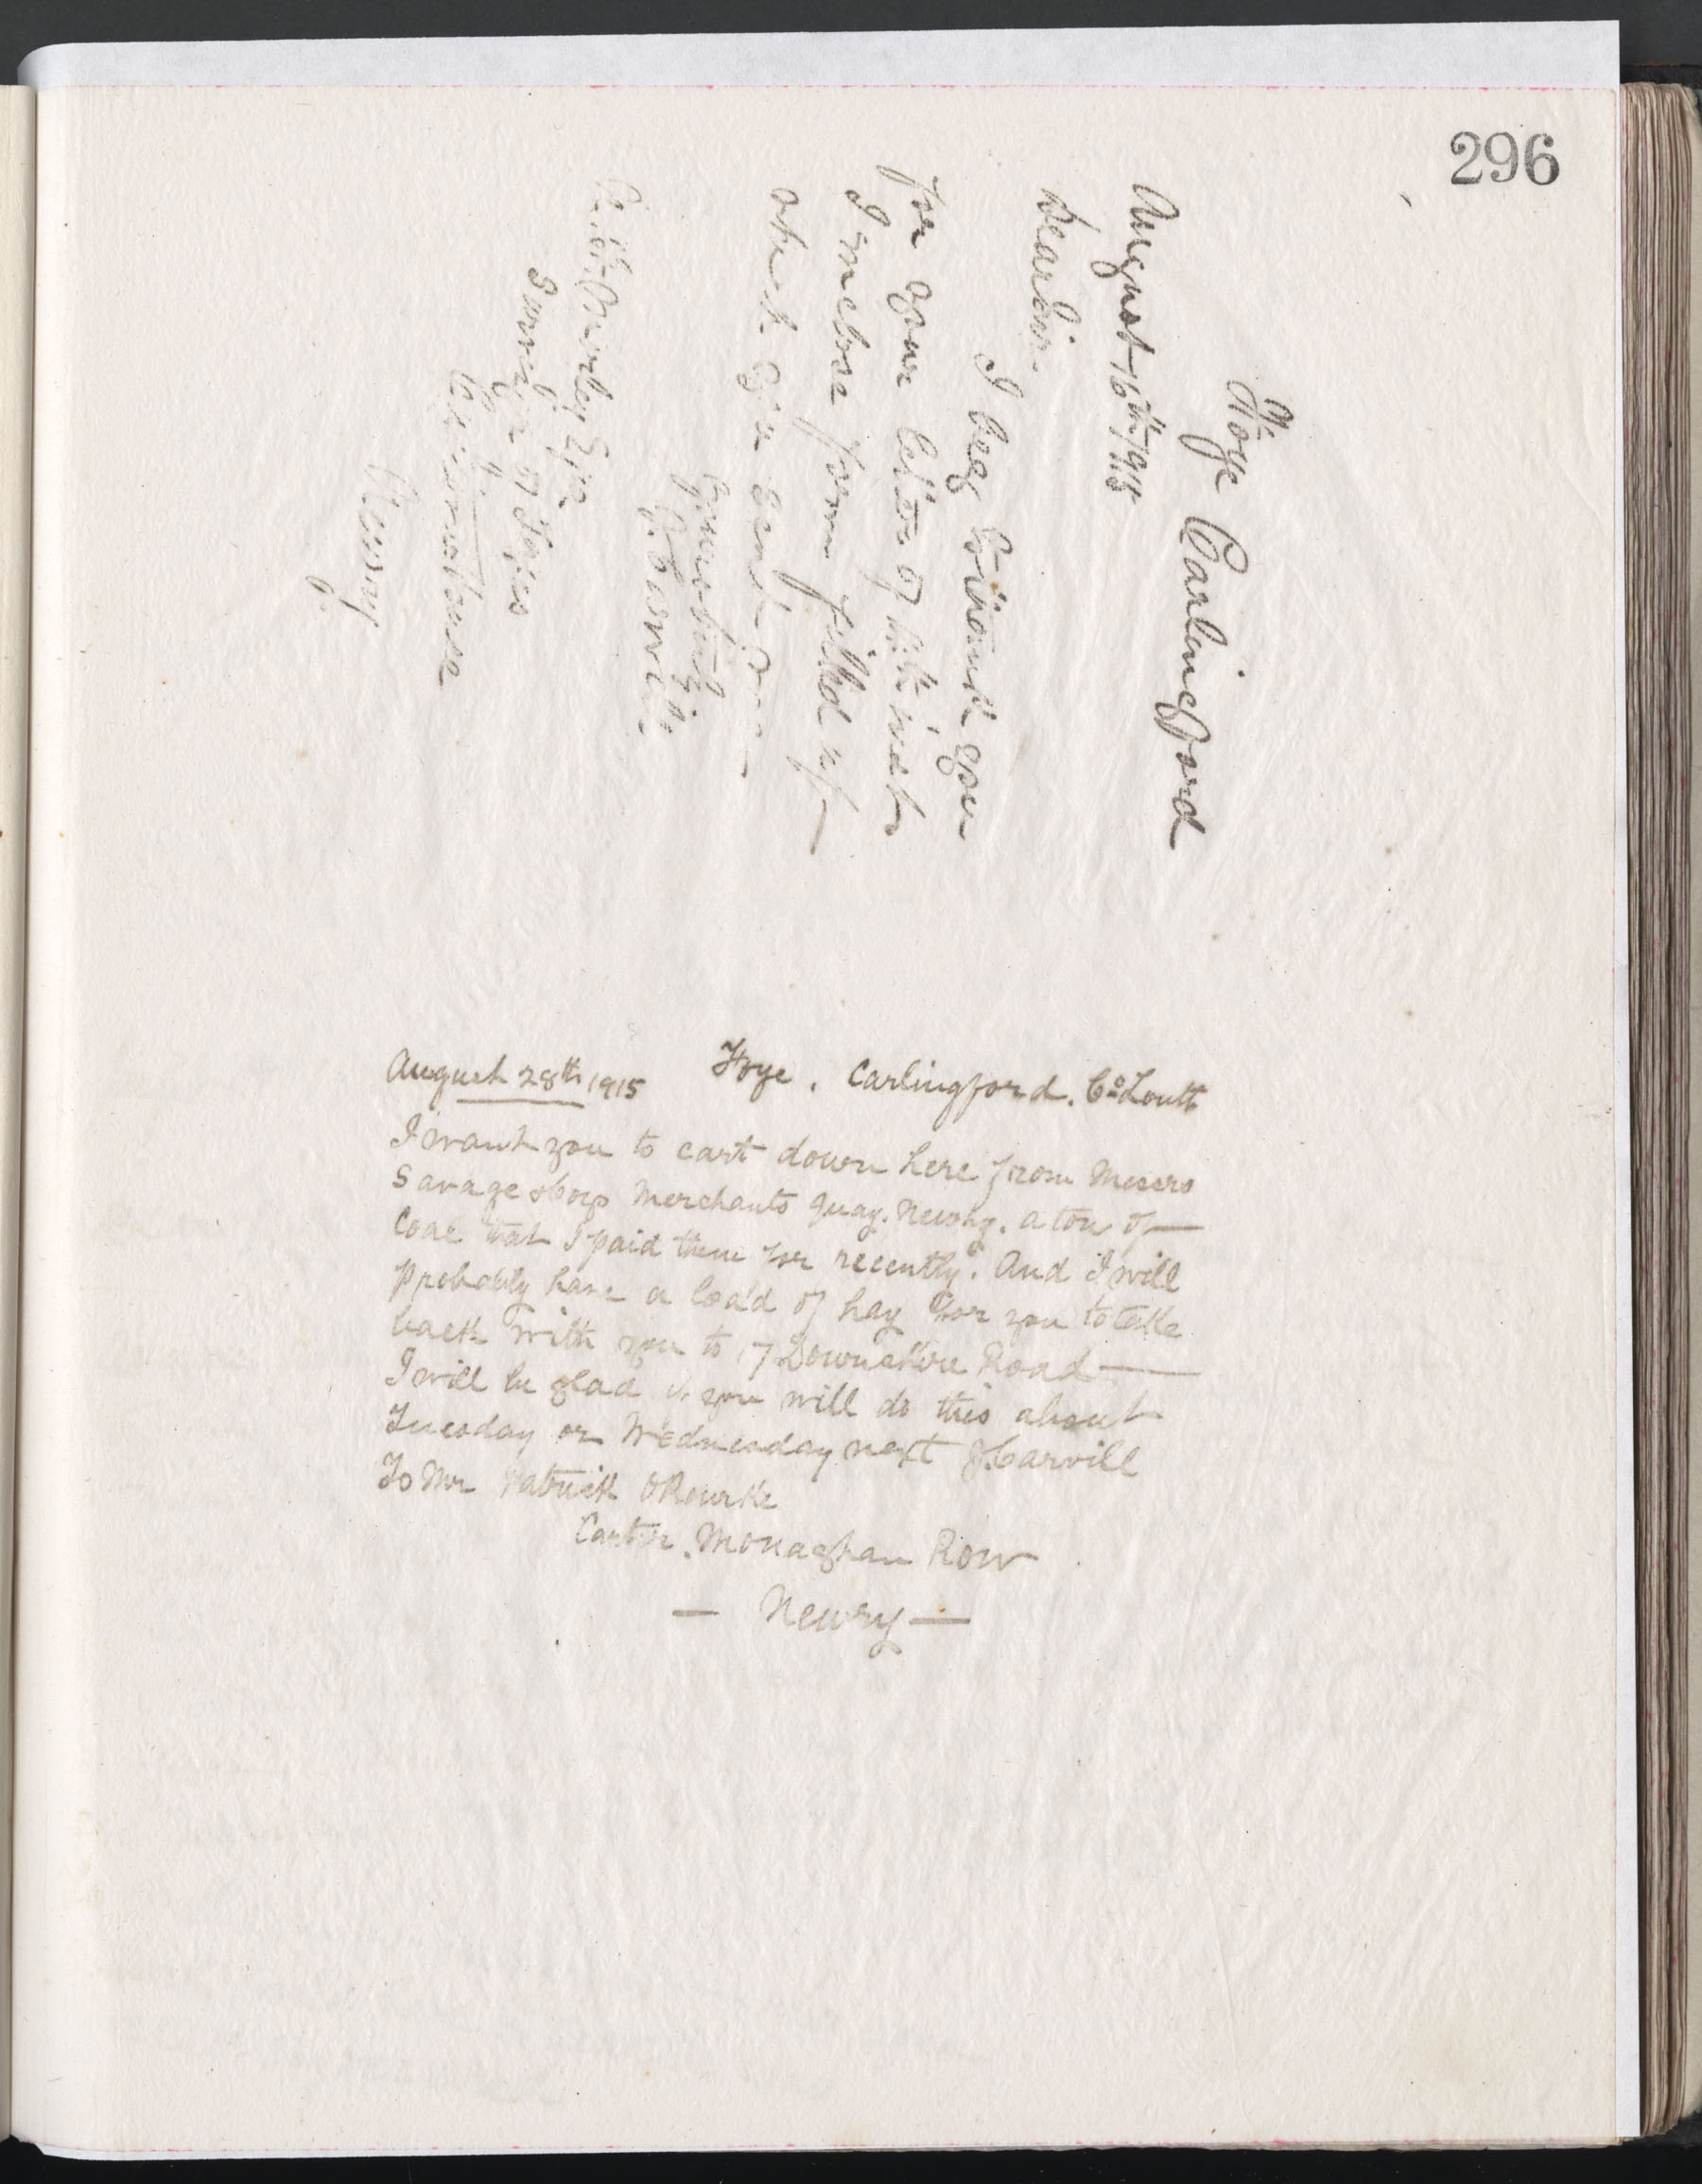 296
Foye Carlingford
August 16th 1915
Dear Sir
I beg to thank you
for your letter of 14th inst
I enclose form filled up
Yours truly
J. Carvill
Esqr
Surveyor of Taxes
Customhouse
Newry
August 28th 1915 Foye. Carlingford. Co Louth
I want you to cart down here from Messrs
Savage &Corp Merchants Quay. Newry. a ton of —
Coal that I paid them for recently. And I will
probably have a load of hay for you to take
back with you to 17 Downshire Road —
I will be glad if you will do this about
Tuesday or Wednesday next J.Carvill
To Mr Patrick ORourke
Carter. Monaghan Row
— Newry —